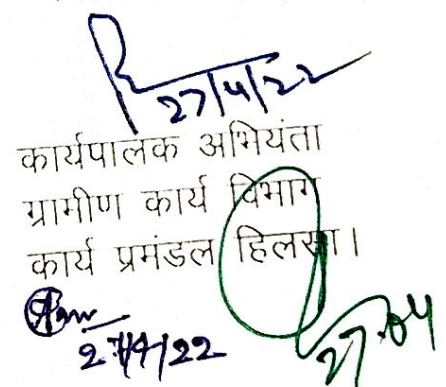 27/4/22
कार्यपालक अभियंता
ग्रामीण कार्य विभाग
कार्य प्रमंडल हिलसा।
27/4/22
27.04